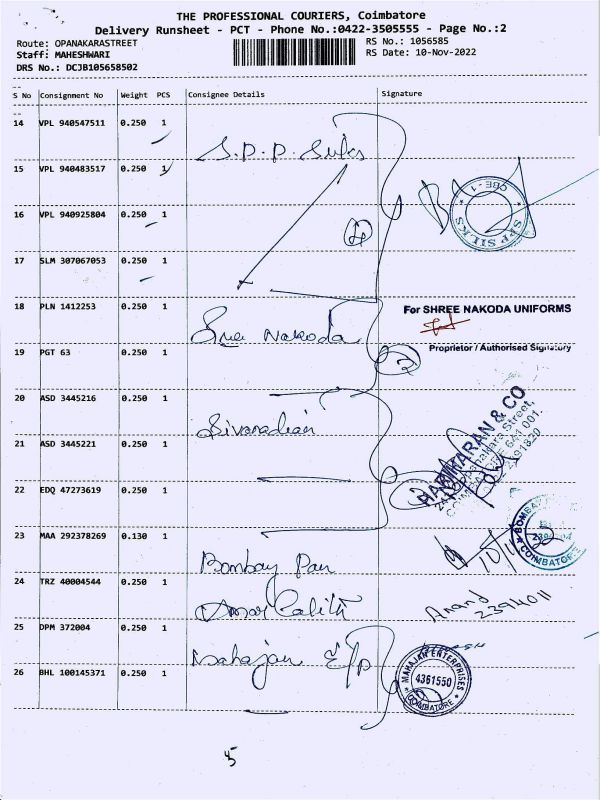 THE PROFESSIONAL COURIERS, Coimbatore
Delivery Runsheet - PCT - Phone No.:0422-3505555 - Page No.:2
Route: OPANAKARASTREET
Staff: MAHESHWARI
DRS No.: DCJB105658502
RS No.: 1056585
RS Date: 10-Nov-2022
S No Consignment No Weight PCS Consignee Details Signature
14 VPL 940547511 0.250 1
S.P.P. Silks
15 VPL 940483517 0.250 1
CBE-1
SPP SILKS
16 VPL 940925804 0.250 1
4
17 SLM 307067053 0.250 1
18 PLN 1412253 0.250 1
For SHREE NAKODA UNIFORMS
Sree Nakoda
Proprietor / Authorised Signatory
19 PGT 63 0.250 1
2
20 ASD 3445216 0.250 1
HARIHARAN & CO
COIMBATORE 641 001.
21 ASD 3445221 0.250 1
22 EDQ 47273619 0.250 1
3
23 MAA 292378269 0.130 1
BOMBAY
COIMBATORE
Bombay Pan
24 TRZ 40004544 0.250 1
Anand
2394011
25 DPM 372004 0.250 1
Mahajan E/p
26 BHL 100145371 0.250 1
MAHAJAN ENTERPRISES
4361550
COIMBATORE
45